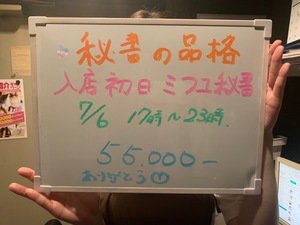 秘書の品格
入店初日 ミフユ秘書
7/6 17時〜23時
55.000−
ありがとう